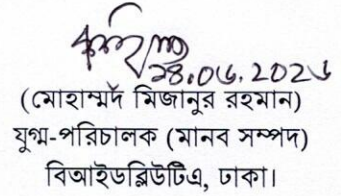 ২৪.০৬.২০২৬
(মোহাম্মদ মিজানুর রহমান)
যুগ্ম-পরিচালক (মানব সম্পদ)
বিআইডব্লিউটিএ, ঢাকা।